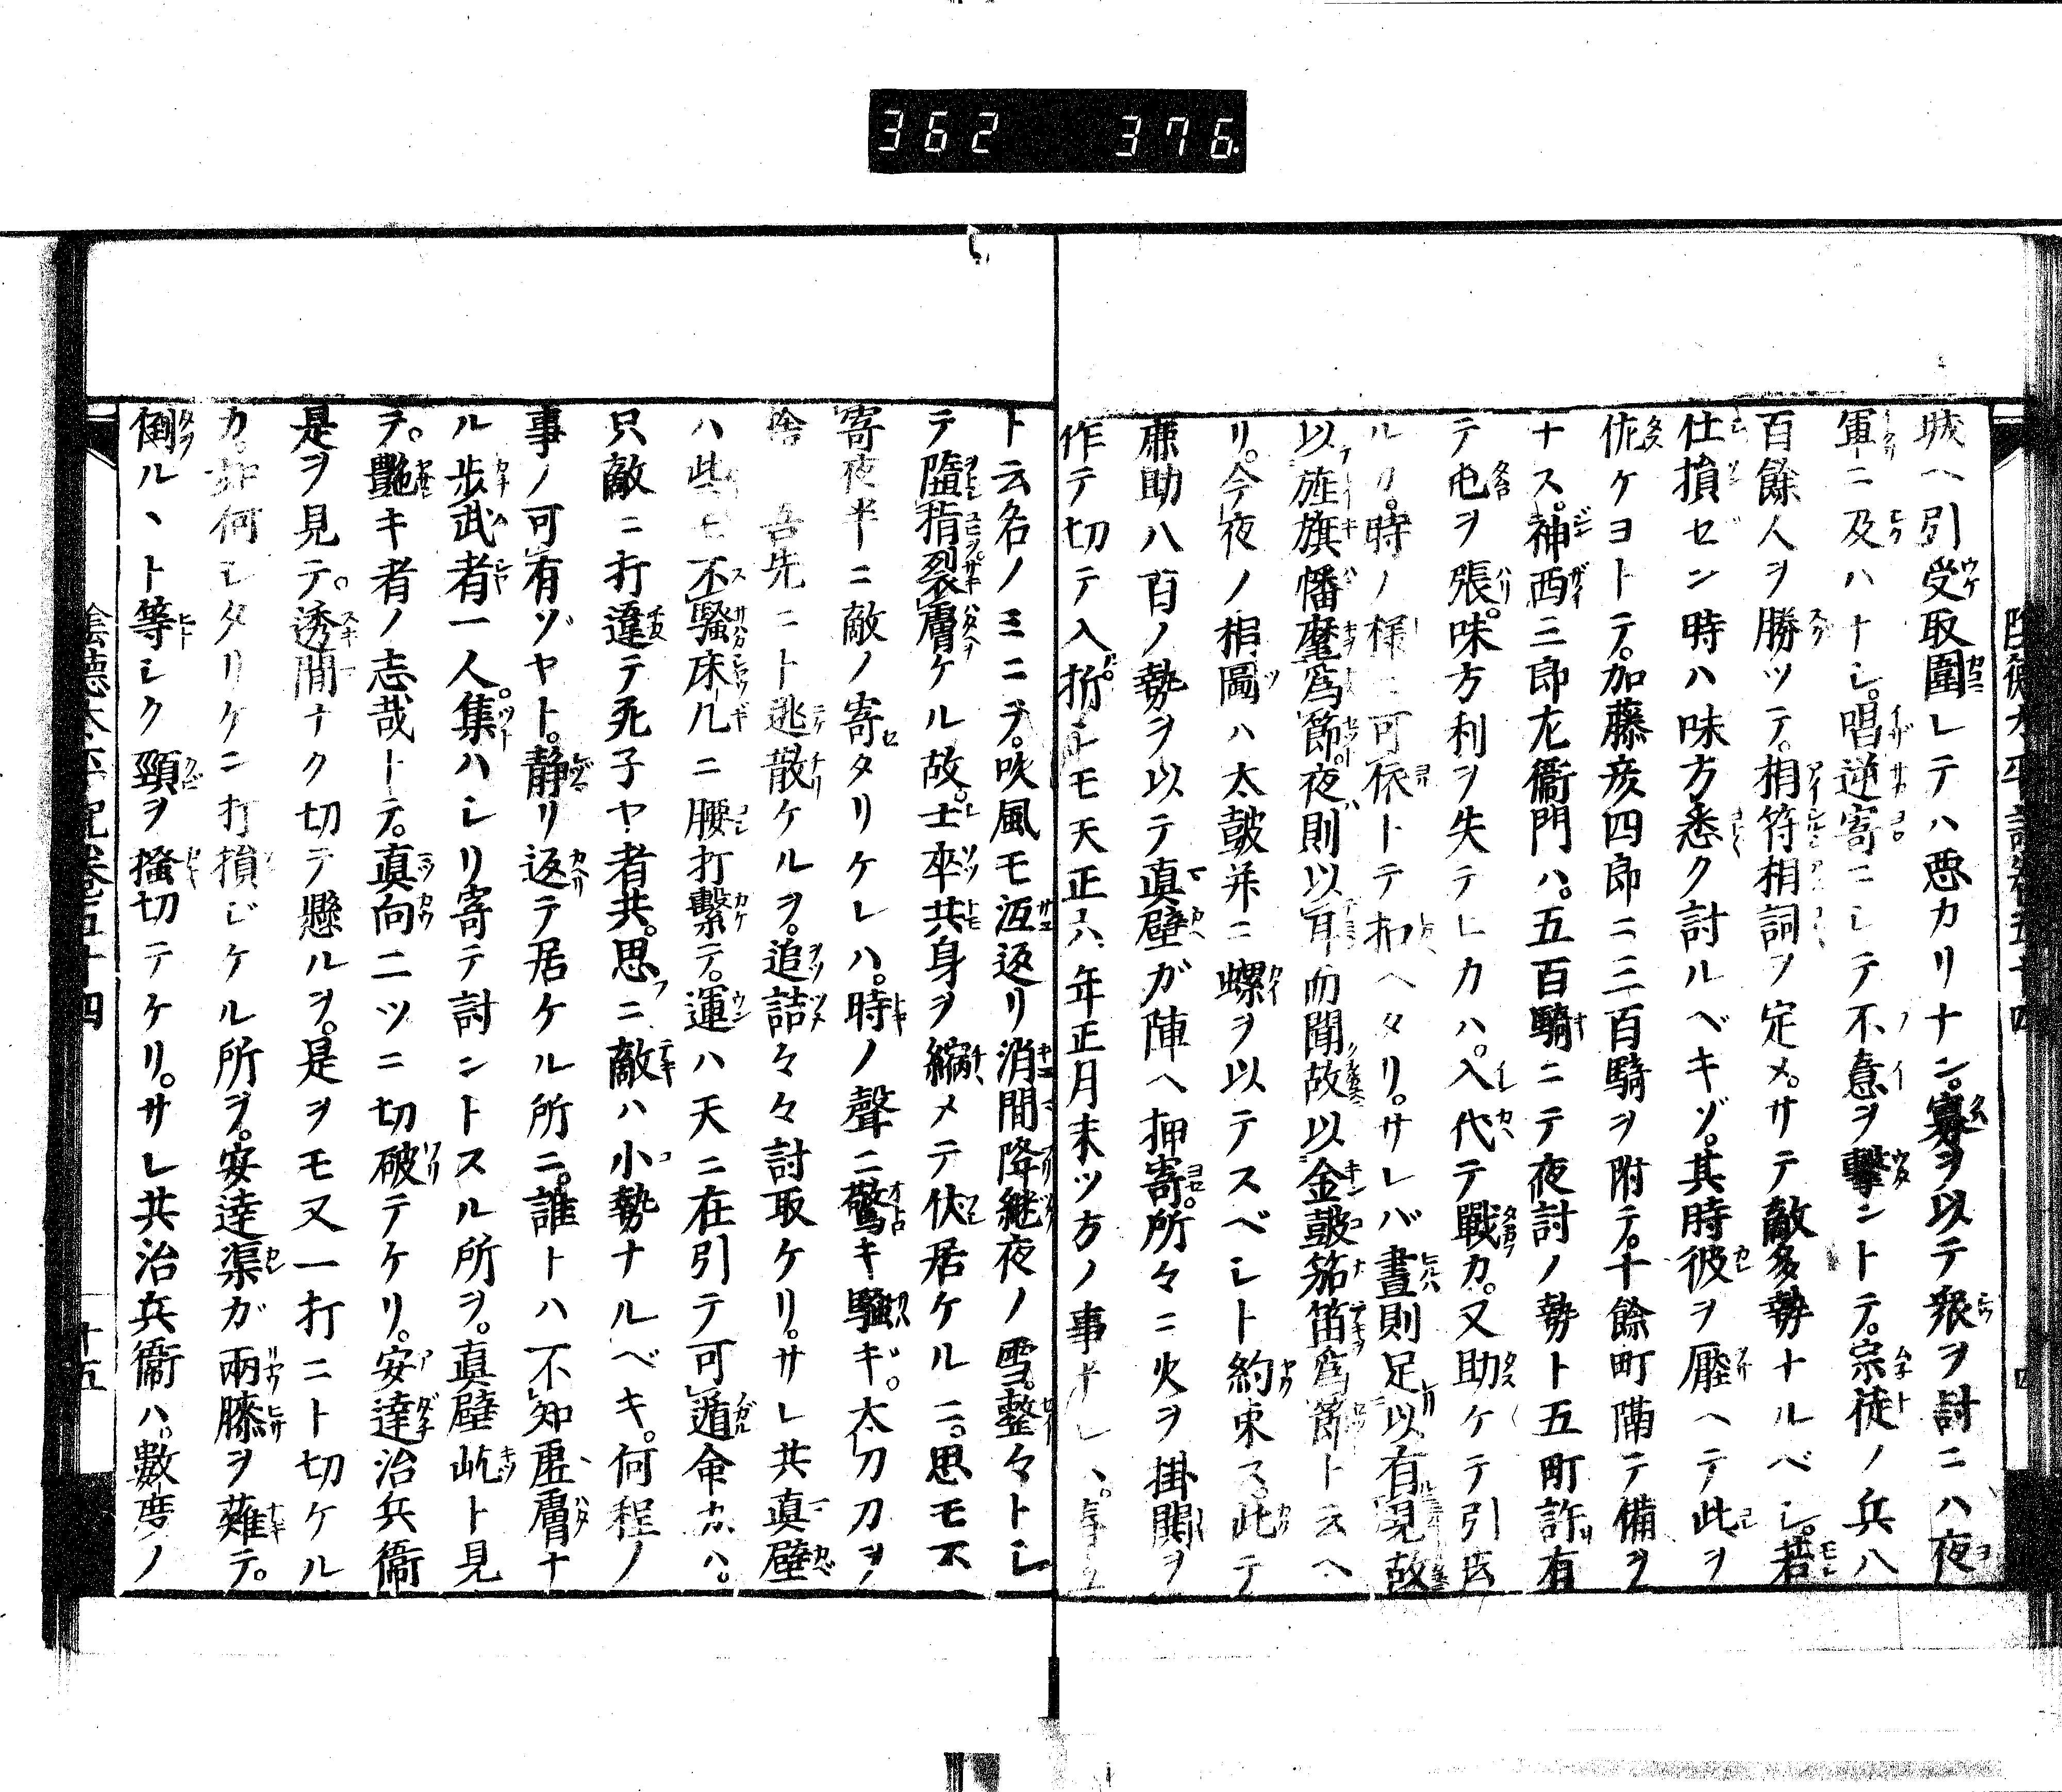 362 376
城ヘ引受取圍レテハ悪カリナン。寡ヲ以テ衆ヲ討ニハ夜
軍ニ及ハナシ。唱逆寄ニシテ不意ヲ撃ントテ。宗徒ノ兵八
百餘人ヲ勝ツテ。相符相詞ヲ定メ。サテ敵多勢ナルベシ。若
仕損ゼン時ハ味方悉ク討ルベキゾ。其時彼ヲ壓ヘテ此ヲ
佐ケヨトテ。加藤彦四郎ニ三百騎ヲ附テ。十餘町隔テ備ヲ
ナス。神西三郎左衛門ハ。五百騎ニテ夜討ノ勢ト五町許有
テ屯ヲ張。味方利ヲ失テヒカハ。入代テ戰カ。又助ケテ引
ルカ。時ノ様ニ可依トテ扣ヘタリ。サレバ晝則足以有見故
以旌旗幡麾爲節。夜則以耳而聞故以金鼓笳笛爲節トヱヘ
リ。今夜ノ相圖ハ太鼓并ニ螺ヲ以テスベシト約束ス。此テ
助八百ノ勢ヲ以テ真壁ガ陣ヘ押寄。所々ニ火ヲ掛鬨ヲ
作テ切テ入。折シモ天正六年正月末ツ方ノ事ナレ
ト云名ノミニテ。吹風モ冱返リ消間降継夜ノ雪。整々トシ
テ墮指裂膚ケル故。士卒共身ヲ縮メテ伏居ケルニ。思モ不
寄夜半ニ敵ノ寄タリケレハ。時ノ聲ニ驚キ騒ギ。太刀刀ヲ
捨 吾先ニト逃散ケルヲ。追詰々々討取ケリ。サレ共真壁
ハ些モ不騒床几ニ腰打繋テ。運ハ天ニ在引テ可遁命カハ。
只敵ニ打違テ死子ヤ者共。思ニ敵ハ小勢ナルベキ。何程ノ
事ノ可有ゾヤト。静リ返テ居ケル所ニ。誰トハ不知虚膚ナ
ル歩武者一人。集ハシリ寄テ討ントスル所ヲ。真壁屹ト見
テ。艶キ者ノ志哉トテ。真向二ツニ切破テケリ。安達治兵衛
是ヲ見テ。透間ナク切テ懸ルヲ。是ヲモ又一打ニト切ケル
カ。如何シタリケニ打損ジケル所ヲ。安達渠ガ兩膝ヲ薙テ。
倒ルヽト等シク頸ヲ掻切テケリ。サレ共治兵衛ハ。數度ノ
陰德太平記卷五十四 十五